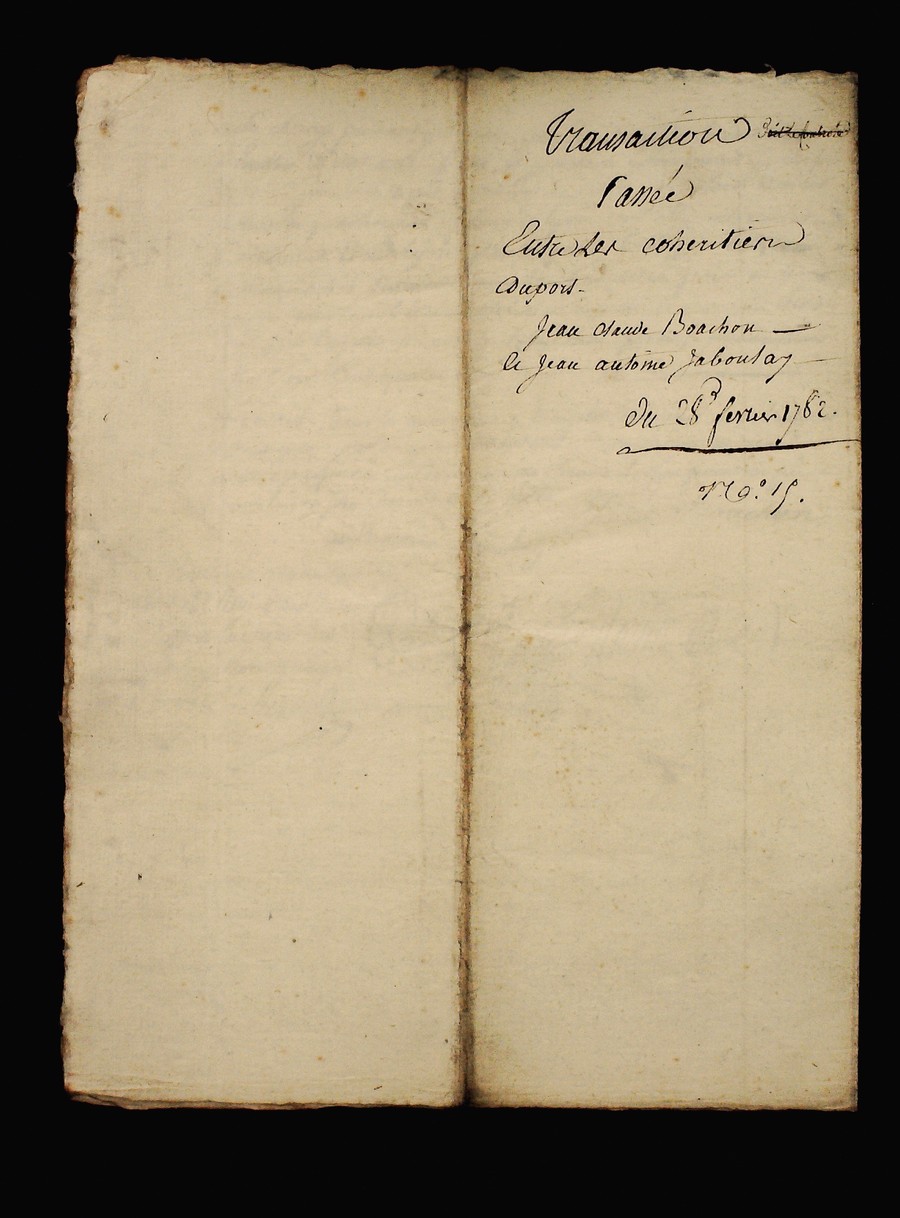 Transaction
Passée
Entre Les coheritiers
Duport
Jean Claude Boachon
& Jean antoine Jaboulay
du 28e fevrier 1782.
No. 15.